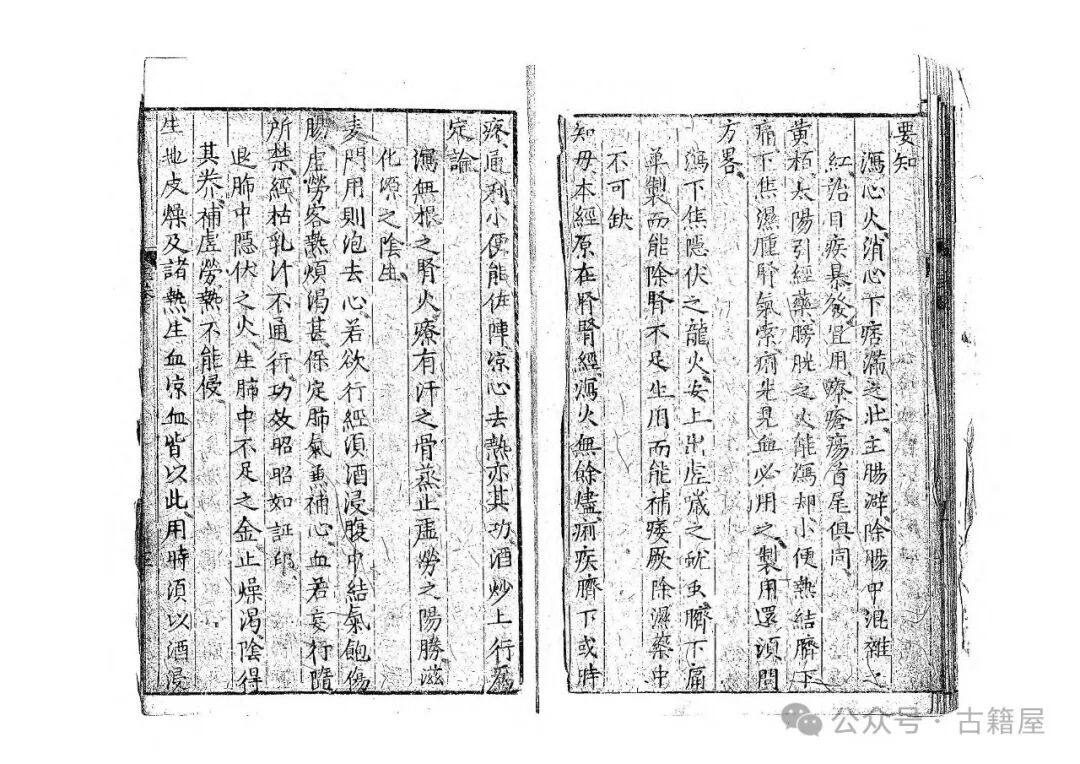 要知
瀉心火消心下痞滿之壯主腸澼除腸中混雜之
紅治目疾暴發宜用療瘡瘍首尾俱同
黄栢太陽引經藥膀胱之火能瀉却小便熱結臍下
痛下焦濕腫腎氣索痢先見血必用之製用還湏問
方畧
瀉下焦隱伏之龍火安上出虛噦之蚘虫臍下痛
單製而能除腎不足生用而能補痿厥除濕藥中
不可缺
知毋本經原在腎腎經瀉火無餘燼痢疾臍下或時
疼通利小便能佐陣凉心去熱亦其功酒炒上行爲
定論
瀉無根之腎火療有汗之骨蒸止虛勞之陽勝滋
化源之陰生
麦門用則泡去心若欲行經湏酒浸腹中結氣飽傷
腸虛勞客熱煩渴甚保定肺氣兼補心血若妄行隨
所禁經枯乳汁不通行功效昭昭如証印
退肺中隱伏之火生肺中不足之金止燥渴陰得
其养補虛勞熱不能侵
生地皮燥及諸熱生血凉血皆以此用時湏以酒浸
公众号·古籍屋